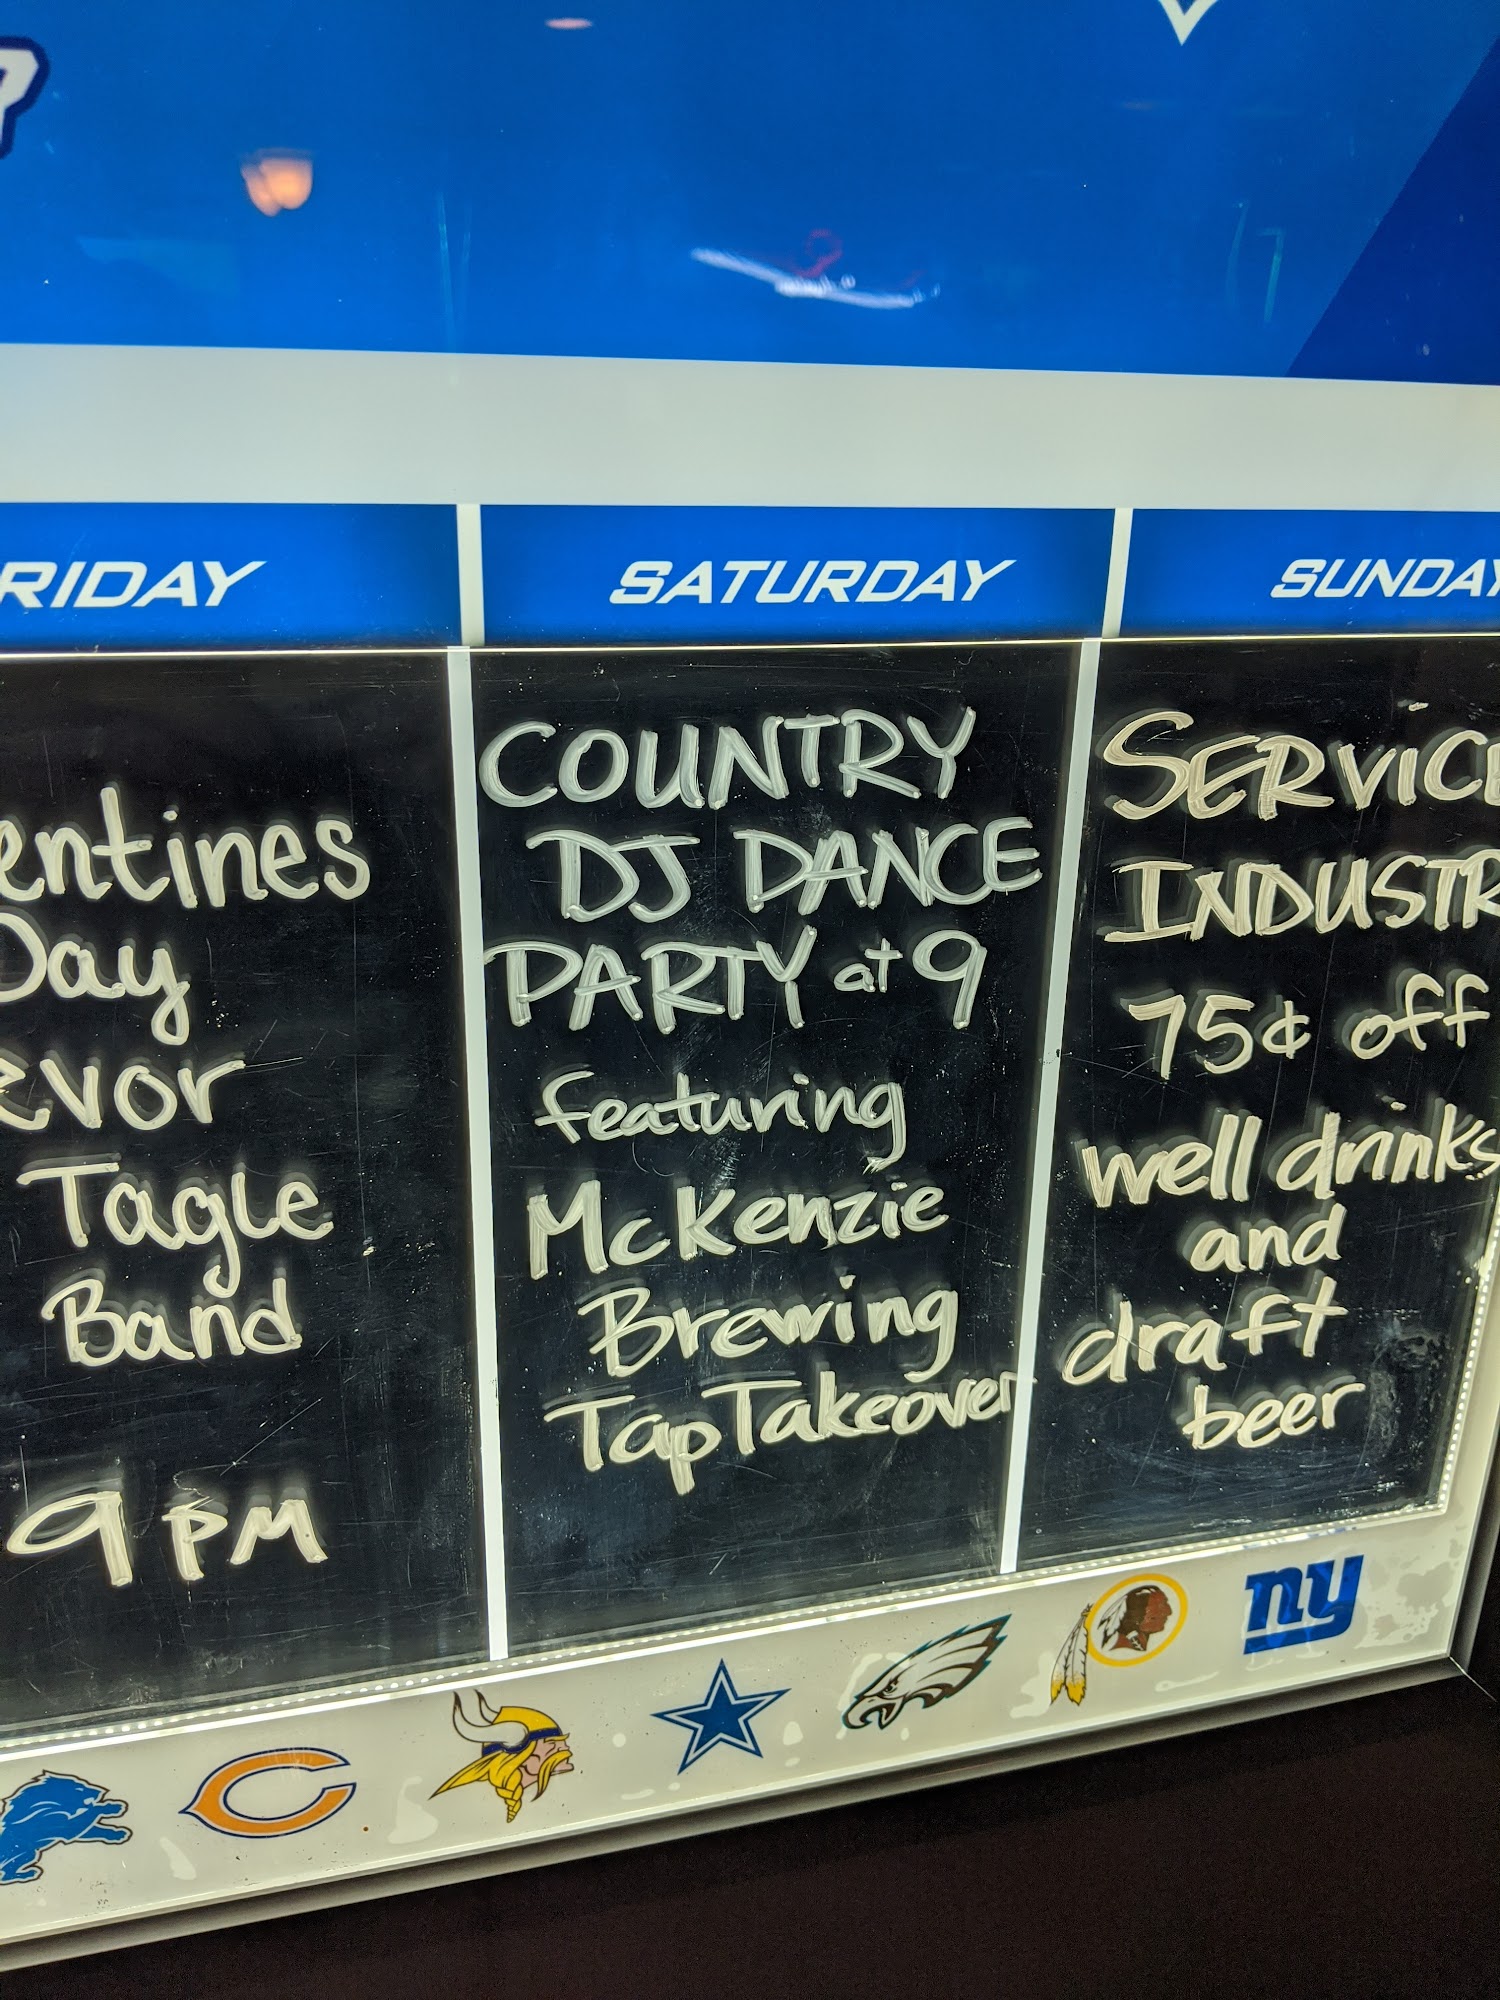 RIDAY
entines
Day
evor
Tagle
Band
9 PM
SATURDAY
COUNTRY
DJ DANCE
PARTY at 9
featuring
McKenzie
Brewing
Tap Takeover
SUNDAY
SERVICE
INDUSTR
75¢ off
well drinks
and
draft
beer
ny